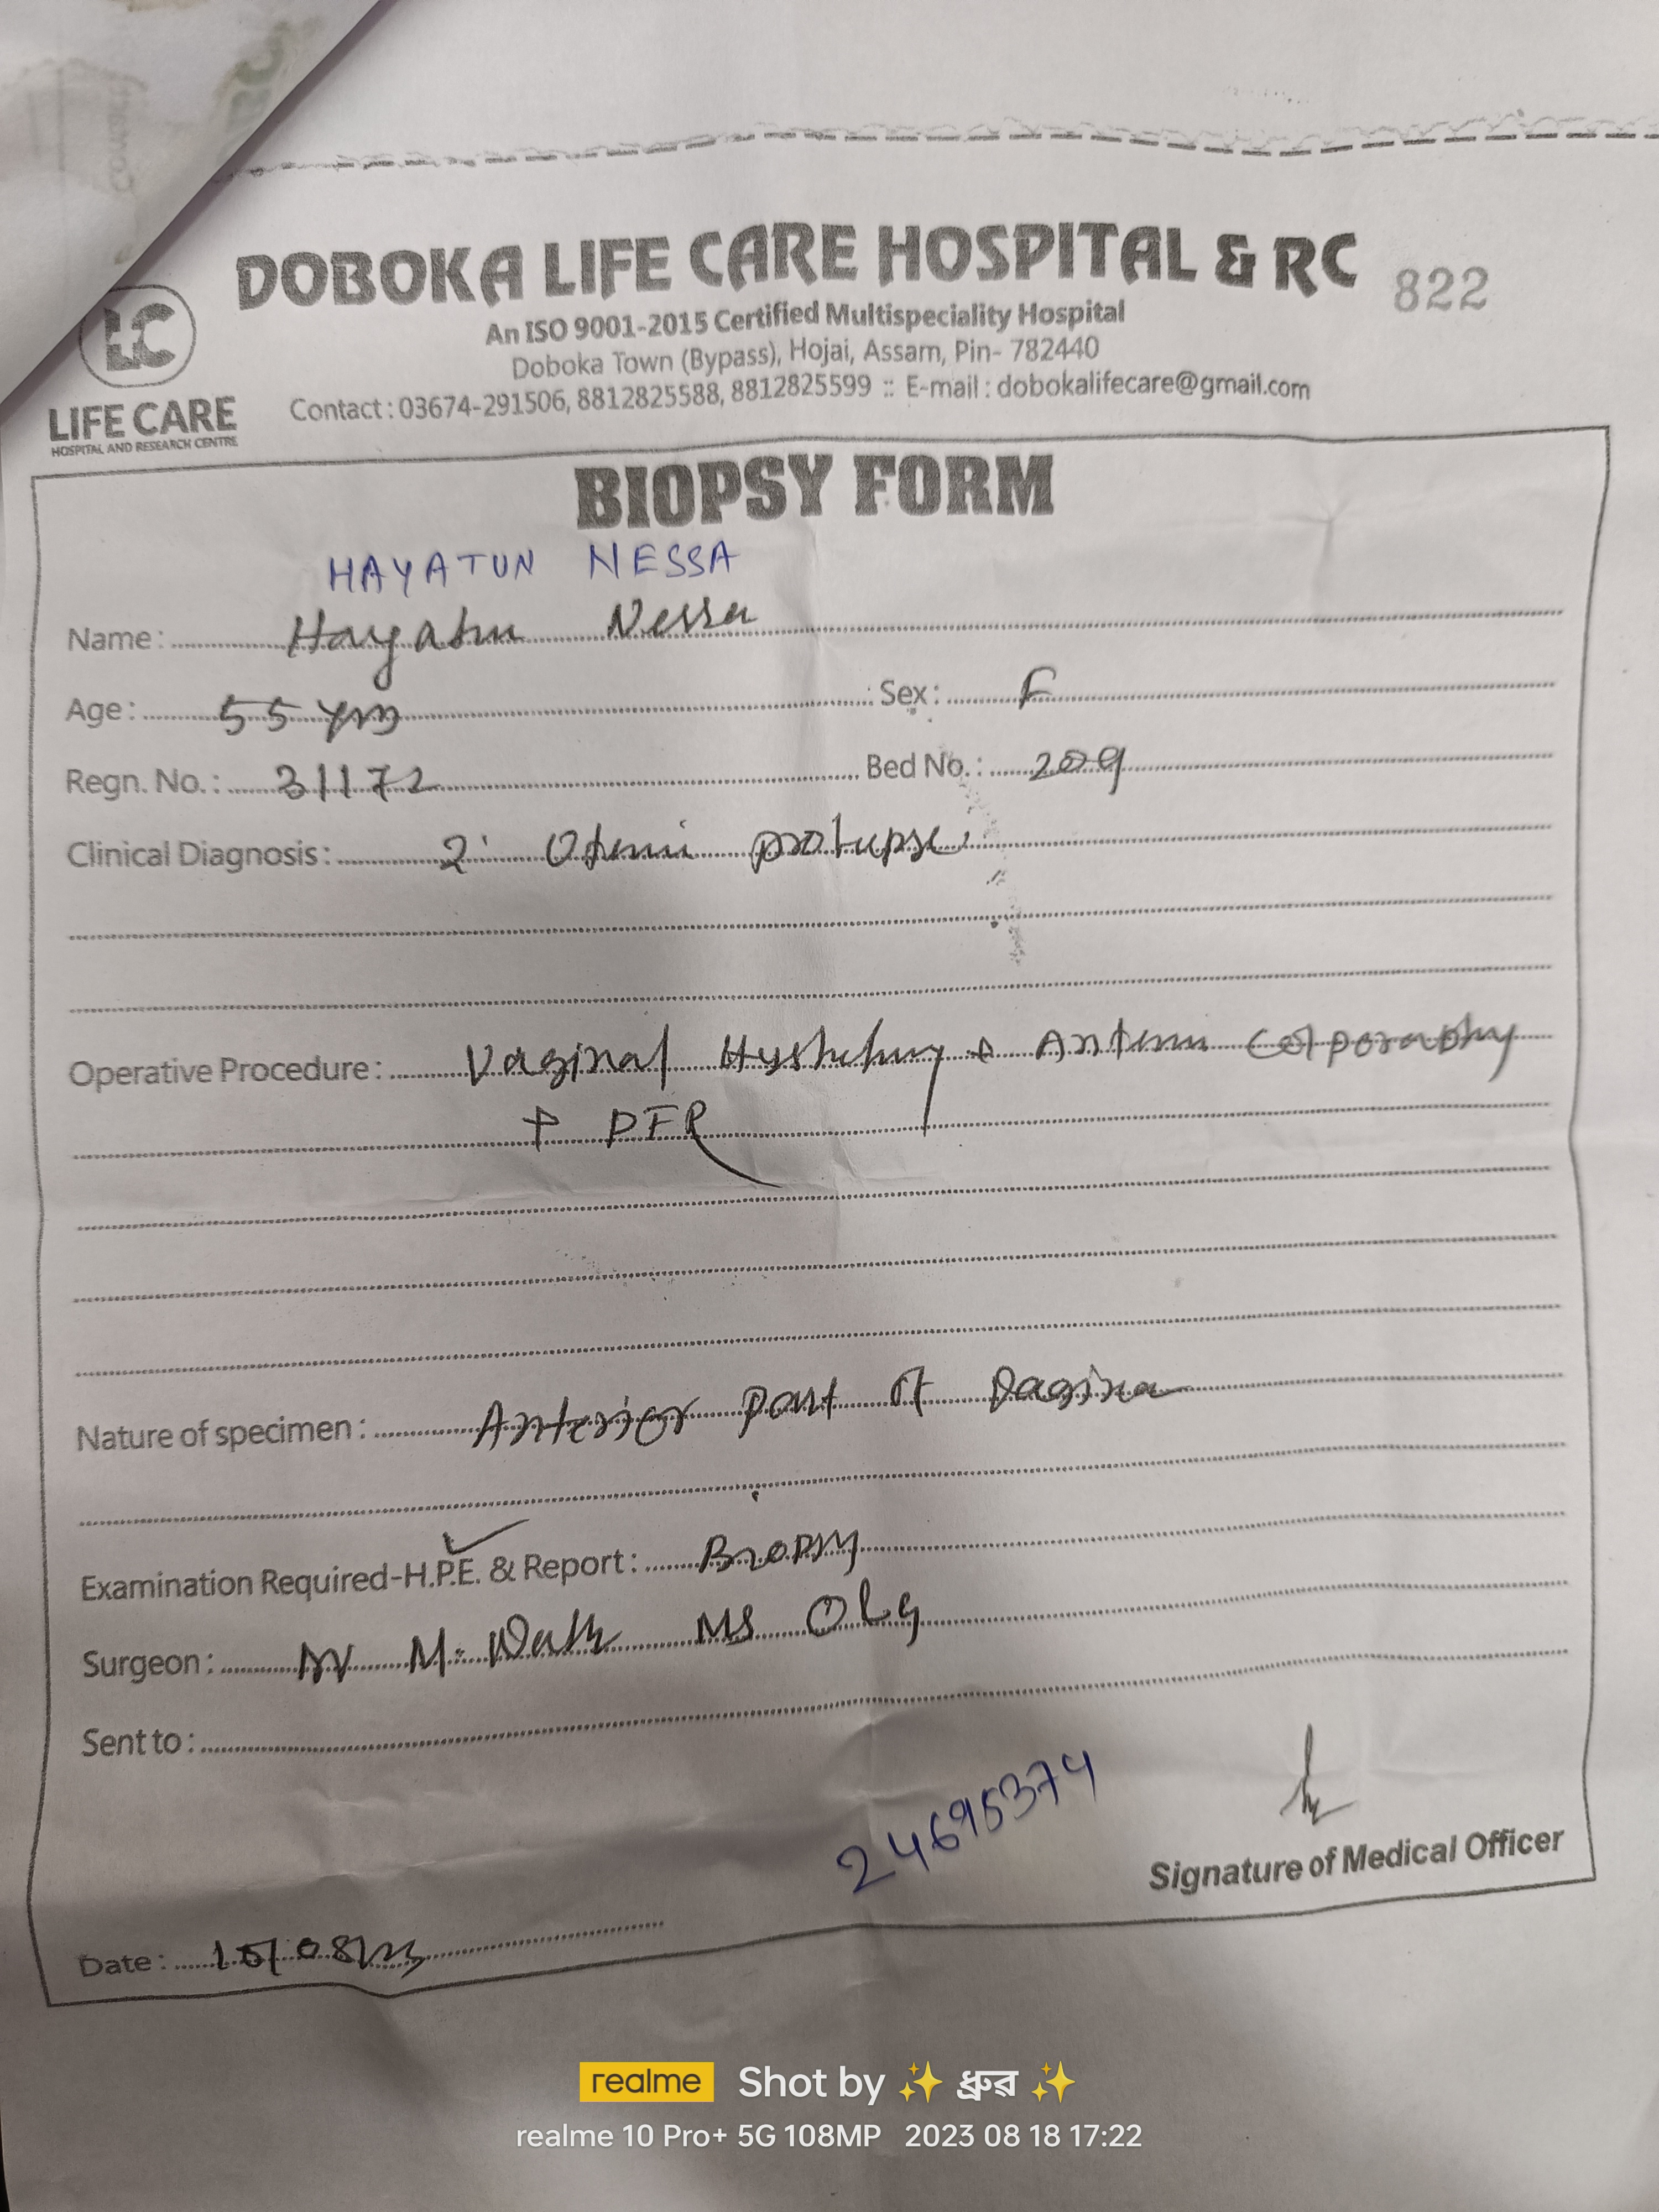 DOBOKA LIFE CARE HOSPITAL & RC 822
An ISO 9001-2015 Certified Multispeciality Hospital
Doboka Town (Bypass), Hojai, Assam, Pin- 782440
Contact : 03674-291506, 8812825588, 8812825599 :: E-mail : dobokalifecare@gmail.com
LC
LIFE CARE
HOSPITAL AND RESEARCH CENTRE
BIOPSY FORM
HAYATUN NESSA
Name : Hayatun Nessa
Age : 55 yrs Sex : F
Regn. No. : 31172 Bed No. : 209
Clinical Diagnosis : 2° prolapse
Operative Procedure : Vaginal + Colporraphy
+ PFR
Nature of specimen : Anterior part of vagina
Examination Required-H.P.E. & Report : Biopsy
Surgeon : Dr M. MS
Sent to :
24695374
Signature of Medical Officer
Date : 15/08/23
realme Shot by ✨ ধ্রুৱ ✨
realme 10 Pro+ 5G 108MP 2023 08 18 17:22